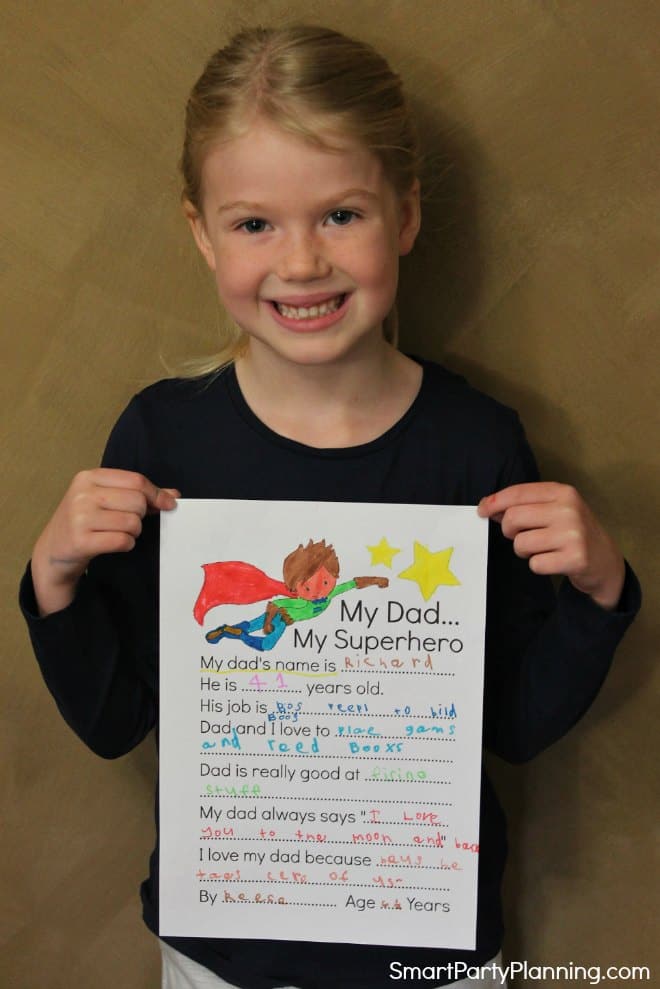 My Dad...
My Superhero
My dad's name is Richard
He is 41 years old.
His job is bos reepl to bild
Boos
Dad and I love to plae gams
and reed Booxs
Dad is really good at ficing
stuff
My dad always says "I Love
you to the moon and" back
I love my dad because
taes cere of us
By Reese Age Years
SmartPartyPlanning.com